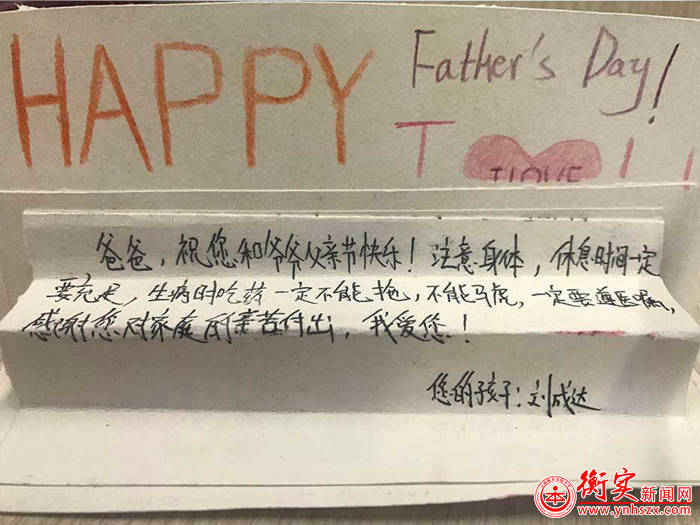 HAPPY Father's Day!
T I LOVE !!
爸爸，祝您和爷爷父亲节快乐！注意身体，休息时间一定
要充足，生病时吃药一定不能拖，不能马虎，一定要遵医嘱，
感谢您对家庭的辛苦付出，我爱您！
您的孩子：刘成达
衡实新闻网
www.ynhszx.com